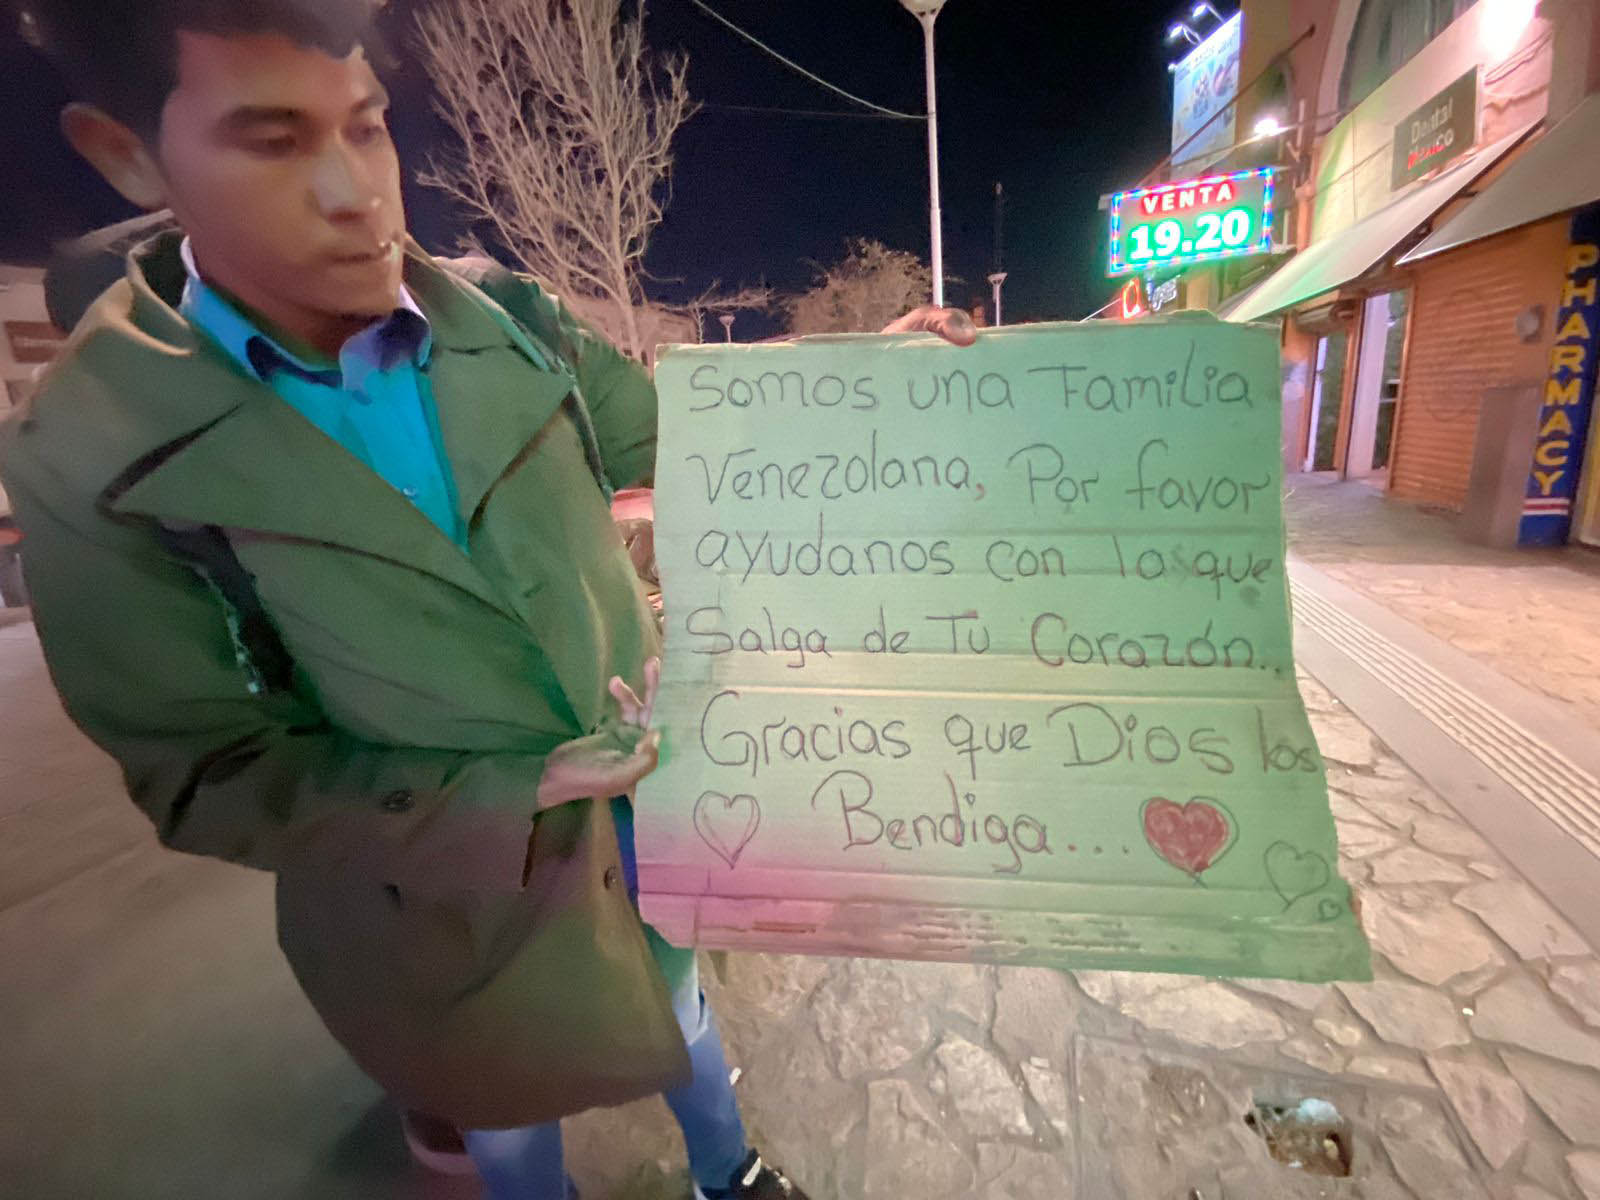 Somos una Familia
Venezolana, Por favor
ayudanos con lo que
Salga de Tu Corazón..
Gracias que Dios los
Bendiga...
VENTA
19.20
Dental
MEXICO
PHARMACY